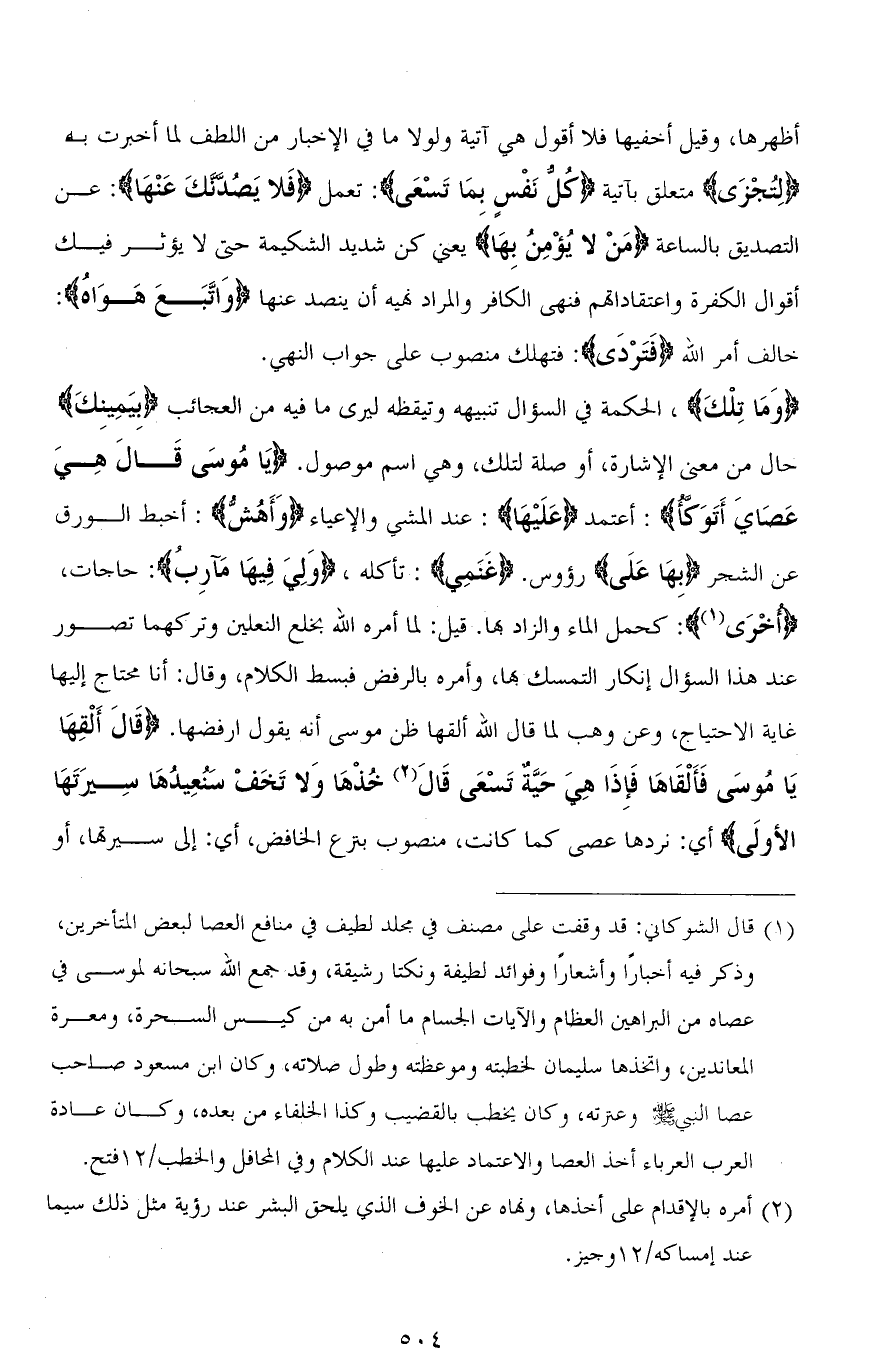 أظهرها، وقيل أخفيها فلا أقول هي آتية ولولا ما في الإخبار من اللطف لما أخبرت به
﴿لِتُجْزَى﴾ متعلق بآتية ﴿كُلُّ نَفْسٍ بِمَا تَسْعَى﴾: تعمل ﴿فَلا يَصُدَّنَّكَ عَنْهَا﴾: عن
التصديق بالساعة ﴿مَنْ لا يُؤْمِنُ بِهَا﴾ يعني كن شديد الشكيمة حتى لا يؤثر فيك
أقوال الكفرة واعتقاداتهم فنهى الكافر والمراد نهيه أن ينصد عنها ﴿وَاتَّبَعَ هَوَاهُ﴾:
خالف أمر الله ﴿فَتَرْدَى﴾: فتهلك منصوب على جواب النهي.
﴿وَمَا تِلْكَ﴾ ، الحكمة في السؤال تنبيهه وتيقظه ليرى ما فيه من العجائب ﴿بِيَمِينِكَ﴾
حال من معنى الإشارة، أو صلة لتلك، وهي اسم موصول. ﴿يَا مُوسَى قَالَ هِيَ
عَصَايَ أَتَوَكَّأُ﴾ : أعتمد ﴿عَلَيْهَا﴾ : عند المشي والإعياء ﴿وَأَهُشُّ﴾ : أخبط الورق
عن الشجر ﴿بِهَا عَلَى﴾ رؤوس. ﴿غَنَمِي﴾ : تأكله ، ﴿وَلِيَ فِيهَا مَآرِبُ﴾: حاجات،
﴿أُخْرَى(١)﴾: كحمل الماء والزاد بها. قيل: لما أمره الله بخلع النعلين وتركهما تصور
عند هذا السؤال إنكار التمسك بها، وأمره بالرفض فبسط الكلام، وقال: أنا محتاج إليها
غاية الاحتياج، وعن وهب لما قال الله ألقها ظن موسى أنه يقول ارفضها. ﴿قَالَ أَلْقِهَا
يَا مُوسَى فَأَلْقَاهَا فَإِذَا هِيَ حَيَّةٌ تَسْعَى قَالَ(٢) خُذْهَا وَلا تَخَفْ سَنُعِيدُهَا سِيرَتَهَا
الأُولَى﴾ أي: نردها عصى كما كانت، منصوب بنزع الخافض، أي: إلى سيرتها، أو
(١) قال الشوكاني: قد وقفت على مصنف في مجلد لطيف في منافع العصا لبعض المتأخرين،
وذكر فيه أخبارًا وأشعارًا وفوائد لطيفة ونكتا رشيقة، وقد جمع الله سبحانه لموسى في
عصاه من البراهين العظام والآيات الجسام ما أمن به من كيس السحرة، ومعرة
المعاندين، واتخذها سليمان لخطبته وموعظته وطول صلاته، وكان ابن مسعود صاحب
عصا النبي ﷺ وعنزته، وكان يخطب بالقضيب وكذا الخلفاء من بعده، وكان عادة
العرب العرباء أخذ العصا والاعتماد عليها عند الكلام وفي المحافل والخطب/١٢فتح.
(٢) أمره بالإقدام على أخذها، ونهاه عن الخوف الذي يلحق البشر عند رؤية مثل ذلك سيما
عند إمساكه/١٢وجيز.
٥٠٤